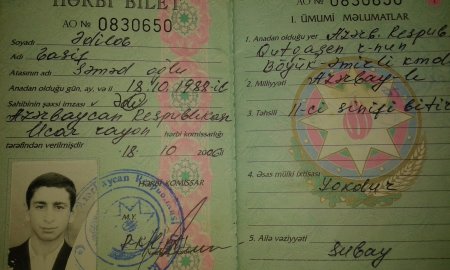 HƏRBİ BİLET
AO № 0830650
Soyadı Ədilov
Adı
Atasının adı Səməd oğlu
Anadan olduğu gün, ay, və il 18.10.1988-il
Sahibinin şəxsi imzası
Azərbaycan Respublikası
Ucar rayon hərbi komissarlığı
tərəfindən verilmişdir
18 10 2006
HƏRBİ KOMİSSAR
M.Y.
AO № 0830650
I. ÜMUMİ MƏLUMATLAR
1. Anadan olduğu yer Azərb. Respub
Qutqaşen r-nun
Böyük-Əmirli kənd
2. Milliyyəti Azərbay-lı
3. Təhsili 11-ci sinifi bitir
4. Əsas mülki ixtisası
Yoxdur
5. Ailə vəziyyəti
Subay